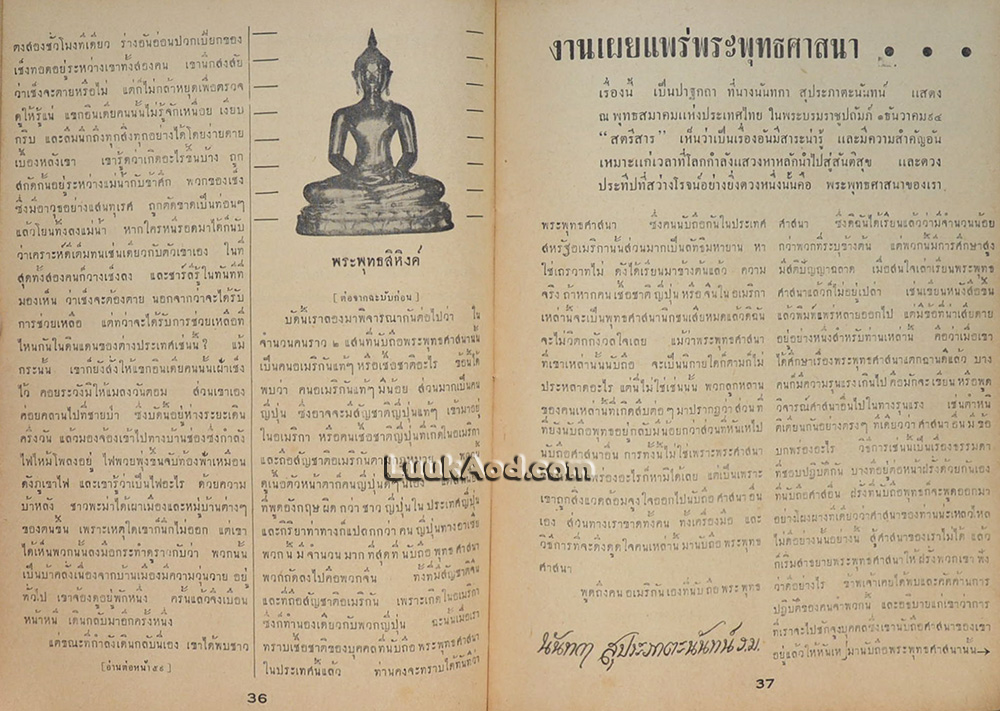 ตงสองชั่วโมงทีเดียว ร่างอันอ่อนปวกเปียกของ
เซ็งทอดอยู่ระหว่างเขาทั้งสองคน เขานึกสงสัย
ว่าเซ็งจะตายหรือไม่ แต่ก็ไม่กล้าหยุดเพื่อตรวจ
ดูให้รู้แน่ แขกอินเดียคนนั้นไม่รู้จักเหนื่อย เงียบ
กริบ
เบื้องหลังเขา เขารู้ตัวว่าเกิดอะไรขึ้นบ้าง ถูก
สกัดกั้นอยู่ระหว่างแม่น้ำกับข้าศึก พวกของเซ็ง
ซึ่งมีอาวุธอย่างแสนทุเรศ ถูกตัดขาดเป็นท่อนๆ
แล้วโยนทิ้งลงแม่น้ำ หากใครหนีรอดมาได้ก็นับ
ว่าเคราะห์ดีเต็มทนเช่นเดียวกับตัวเขาเอง ในที่
สุดทั้งสองคนก็วางเซ็งลง และชาร์ลี่รู้ในทันทีที่
มองเห็น ว่าเซ็งจะต้องตาย นอกจากว่าจะได้รับ
การช่วยเหลือ แต่ทว่าจะได้รับการช่วยเหลือที่
ไหนกันในดินแดนของต่างประเทศเช่นนี้? แม้
กระนั้น เขาก็ยังสั่งให้แขกอินเดียคนนั้นเฝ้าเซ็ง
ไว้ คอยระวังมิให้แมลงวันตอม ส่วนเขาเอง
ค่อยคลานไปที่ชายป่า ซึ่งบัดนี้อยู่ห่างระยะเดิน
ครึ่งวัน แล้วมองจ้องเข้าไปทางบ้านช่องซึ่งกำลัง
ไฟไหม้โพลงอยู่ ไฟพวยพุ่งขึ้นจับท้องฟ้าเหมือน
ดังภูเขาไฟ และเขารู้ว่าเป็นไฟอะไร ด้วยความ
บ้าหลัง ชาวพะม่าได้เผาเมืองและหมู่บ้านต่างๆ
ของตนขึ้น เพราะเหตุใดเขาก็นึกไม่ออก แต่เขา
ได้เห็นพวกนั้นลงมือกระทำดูราวกับว่า พวกนั้น
เป็นบ้าคลั่งเนื่องจากบ้านเมืองมีความวุ่นวาย อยู่
ทั่วไป เขาจ้องดูอยู่พักหนึ่ง ครั้นแล้วจึงเบือน
หน้าหนี เดินกลับมาอีกครั้งหนึ่ง
แต่ขณะที่กำลังเดินกลับนี่เอง เขาได้พบชาว
พระพุทธสิหิงค์
[ต่อจากฉะบับก่อน]
บัดนี้เราลองมาพิจารณากันต่อไปว่า ใน
จำนวนคนราว ๒ แสนที่นับถือพระพุทธศาสนานั้น
เป็นคนอเมริกันแท้ๆ หรือเชื้อชาติอะไร ข้อนี้ได้
พบว่า คนอเมริกันแท้ๆ มีน้อย ส่วนมากเป็นคน
ญี่ปุ่น ซึ่งอาจจะมีสัญชาติญี่ปุ่นแท้ๆ เข้ามาอยู่
ในอเมริกา หรือคนเชื้อชาติญี่ปุ่นที่เกิดในอเมริกา
และถือสัญชาติอเมริกันตามกฎหมาย
ที่พูดอังกฤษ ผิด กว่า ชาว ญี่ปุ่น ใน ประเทศญี่ปุ่น
และกิริยาท่าทางก็แปลกกว่า คน ญี่ปุ่นทางอาเซีย
พวก นี้ มี จำนวน มาก ที่สุด ที่ นับถือ พุทธ ศาสนา
พวกถัดลงไปคือพวกจีน ทั้งที่มีสัญชาติจีน
และที่ถือสัญชาติอเมริกัน เพราะเกิดในอเมริกา
ซึ่งก็ทำนองเดียวกับพวกญี่ปุ่น ฉะนั้นเมื่อเรา
ทราบเชื้อชาติของบุคคลที่นับถือพระพุทธศาสนา
ในประเทศนั้นแล้ว ท่านคงจะทราบได้ทันทีว่า
[อ่านต่อหน้า๕๕]
36
LuukAod.com
งานเผยแพร่พระพุทธศาสนา . . .
เรื่องนี้ เป็นปาฐกถา ที่นางนันทกา สุประภาตะนันทน์ แสดง
ณ พุทธสมาคมแห่งประเทศไทย ในพระบรมราชูปถัมภ์ ๑ธันวาคม๙๔
“สตรีสาร” เห็นว่าเป็นเรื่องอันมีสาระน่ารู้ และมีความสำคัญอัน
เหมาะแก่เวลาที่โลกกำลังแสวงหาหลักนำไปสู่สันติสุข และดวง
ประทีปที่สว่างโรจน์อย่างยิ่งดวงหนึ่งนั้นคือ พระพุทธศาสนาของเรา
พระพุทธศาสนา ซึ่งคนนับถือกันในประเทศ
สหรัฐอเมริกานั้นส่วนมากเป็นลัทธิมหายาน หา
ใช่เถรวาทไม่ ดังได้เรียนมาข้างต้นแล้ว ความ
จริง ถ้าหากคน เชื้อชาติ ญี่ปุ่น หรือ จีน ใน อเมริกา
เหล่านั้นจะเป็นพุทธศาสนิกชนเสียหมดแล้วดิฉัน
จะไม่วิตกกังวลใจเลย แม้ว่าพระพุทธศาสนา
ที่เขาเหล่านั้นนับถือ จะเป็นนิกายใดก็ตามก็ไม่
ประหลาดอะไร แต่นี่ไม่ใช่เช่นนั้น พวกลูกหลาน
ของคนเหล่านี้ที่เกิดสืบต่อๆ มาปรากฏว่า ส่วน ที่
ที่ยังนับถือพุทธ อยู่ กลับ มี น้อย กว่าส่วนที่หันเหไป
นับถือศาสนาอื่น การทั้งนี้ไม่ใช่เพราะพระศาสนา
เขาถูกสิ่งแวดล้อมจูงใจออกไปนับถือ ศาสนา อื่น
เอง ส่วนทางเราขาดทั้งคน ทั้งเครื่องมือ และ
วิธีการที่จะดึงดูดใจคนเหล่านั้นมานับถือพระพุทธ
ศาสนา
พูดถึงคน อเมริกันเองที่นับถือ พระพุทธ
นันทกา สุประภาตะนันทน์ ร.ม.
ศาสนา ซึ่งดิฉันได้เรียนแล้วว่ามีจำนวนน้อย
กว่าพวกที่ระบุข้างต้น แต่พวกนี้มีการศึกษาสูง
มีสติปัญญาฉลาด เมื่อสนใจเล่าเรียนพระพุทธ
ศาสนาแล้วก็ไม่อยู่เปล่า เช่นเขียนหนังสือขึ้น
แล้วพิมพ์แพร่หลายออกไป แต่มีข้อที่น่าเสียดาย
อยู่อย่างหนึ่งสำหรับท่านเหล่านี้ คือว่าเมื่อเขา
ได้ศึกษาเรื่องพระพุทธศาสนาแตกฉานดีแล้ว บาง
คนก็มีความรุนแรงเกินไป คือมักจะ เขียน หรือพูด
วิจารณ์ศาสนาอื่นไปในทางรุนแรง เช่นตำหนิ
ติเตียนกันอย่างตรงๆ ทีเดียวว่าศาสนา อื่น มี ข้อ
บกพร่องอะไร วิธีการเช่นนี้เป็นเรื่องธรรมดา
ที่ชอบปฏิบัติกัน บางทีอยู่ต่อหน้าฝรั่งด้วยกันเอง
ที่นับถือศาสนาอื่น ฝรั่งที่นับถือพุทธก็จะพูดออกมา
อย่างโผงผางทีเดียวว่าศาสนาของท่านน่ะเหลวไหล
ไม่ดีอย่างนั้นอย่างนี้ สู้ศาสนาของเราไม่ได้ แล้ว
ก็เริ่มสาธยายพระพุทธศาสนาให้ฝรั่งพวกเขา ฟัง
ว่าดีอย่างไร ข้าพเจ้าเคยได้พบและคัดค้านการ
ปฏิบัติของคนจำพวกนี้ และอธิบายแก่เขาว่าการ
ที่เราจะไปชักจูงบุคคลซึ่งเขานับถือศาสนาของเขา
อยู่แล้วให้หันเหมานับถือพระพุทธศาสนานั้น→
37